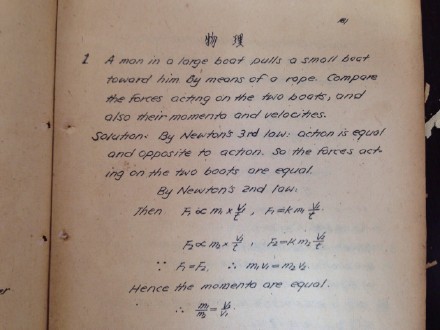 物 理
1 A man in a large boat pulls a small boat
toward him By means of a rope. Compare
the forces acting on the two boats, and
also their momenta and velocities.
Solution: By Newton's 3rd law: action is equal
and opposite to action. So the forces act-
ing on the two boats are equal.
By Newton's 2nd law:
Then F₁ ∝ m₁ × V₁/t , F₁ = k m₁ V₁/t
F₂ ∝ m₂ × V₂/t , F₂ = k m₂ V₂/t
∵ F₁ = F₂, ∴ m₁v₁ = m₂v₂.
Hence the momenta are equal.
∴ m₁/m₂ = V₂/V₁